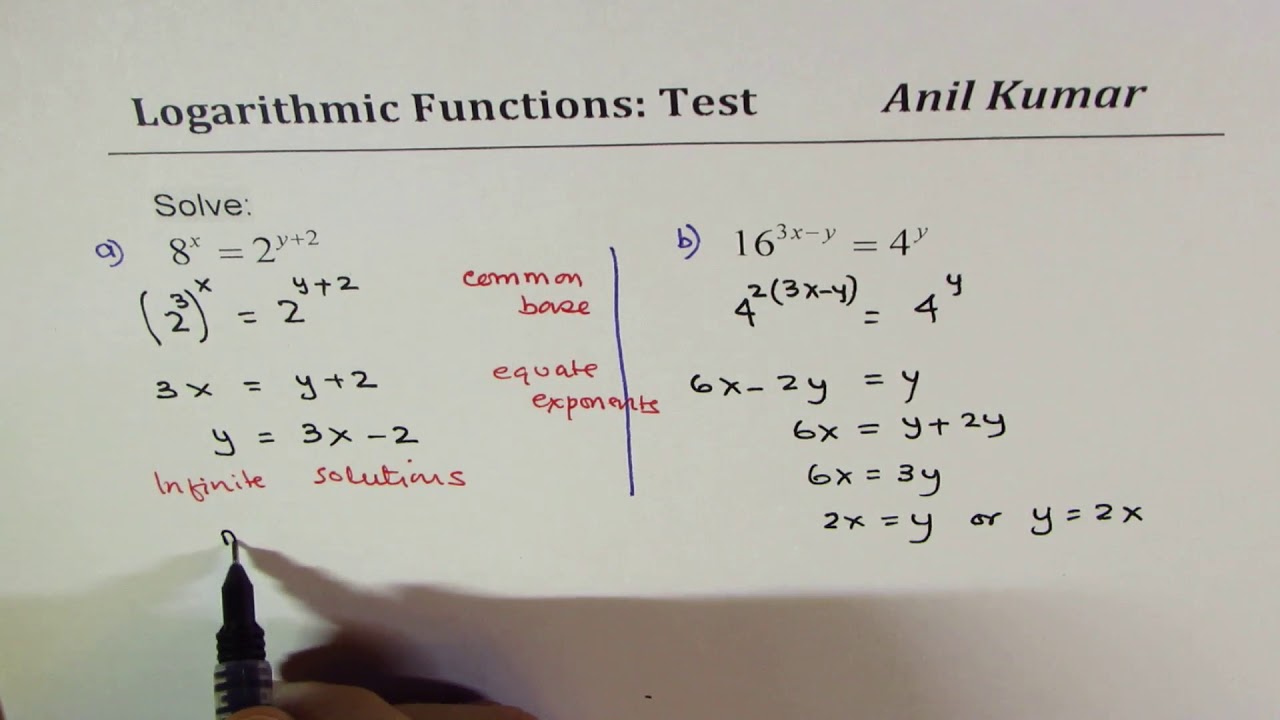 Logarithmic Functions: Test Anil Kumar
Solve:
a) 8^x = 2^{y+2}
(2^3)^x = 2^{y+2}
common
base
3x = y+2
equate
exponents
y = 3x-2
Infinite solutions
b) 16^{3x-y} = 4^y
4^{2(3x-y)} = 4^y
6x-2y = y
6x = y+2y
6x = 3y
2x = y or y = 2x